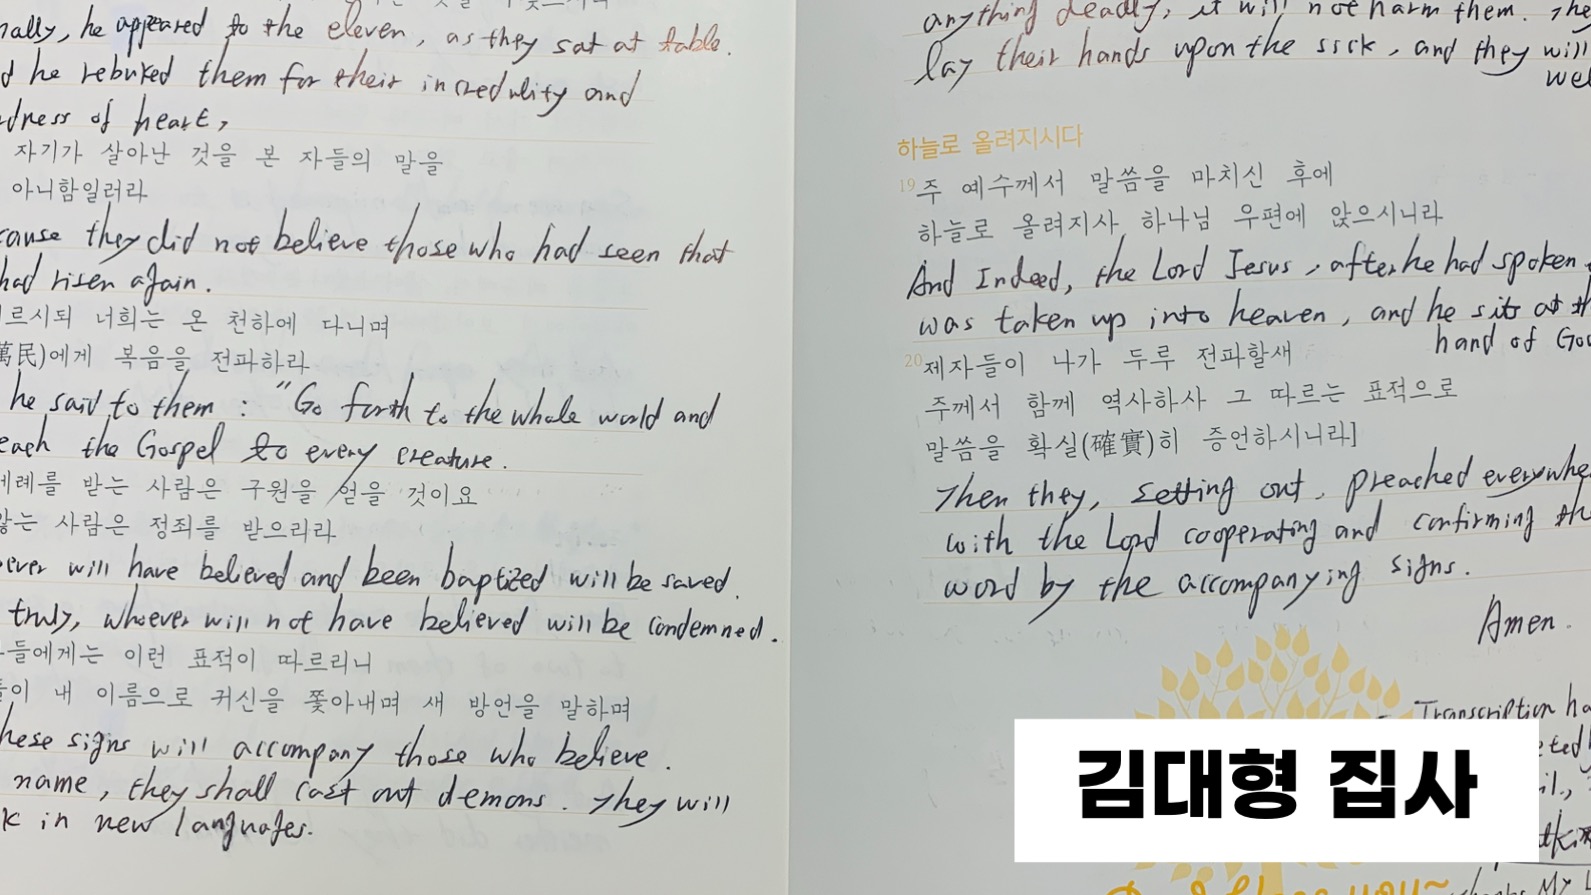 nally, he appeared to the eleven, as they sat at table.
d he rebuked them for their incredulity and
dness of heart,
자기가 살아난 것을 본 자들의 말을
아니함일러라
cause they did not believe those who had seen that
had risen again.
르시되 너희는 온 천하에 다니며
萬民)에게 복음을 전파하라
he said to them : "Go forth to the whole world and
each the Gospel to every creature.
세례를 받는 사람은 구원을 얻을 것이요
않는 사람은 정죄를 받으리라
ever will have believed and been baptized will be saved.
truly, whoever will not have believed will be condemned.
들에게는 이런 표적이 따르리니
들이 내 이름으로 귀신을 쫓아내며 새 방언을 말하며
hese signs will accompany those who believe.
name, they shall cast out demons. They will
k in new languages.
anything deadly, it will not harm them. They
lay their hands upon the sick, and they will
wel
하늘로 올려지시다
19 주 예수께서 말씀을 마치신 후에
하늘로 올려지사 하나님 우편에 앉으시니라
And Indeed, the Lord Jesus, after he had spoken
was taken up into heaven, and he sits at th
hand of Go
20 제자들이 나가 두루 전파할새
주께서 함께 역사하사 그 따르는 표적으로
말씀을 확실(確實)히 증언하시니라]
Then they, setting out, preached everywhe
with the Lord cooperating and confirming the
word by the accompanying signs.
Amen.
Transcription ha
eted
김대형 집사
you~